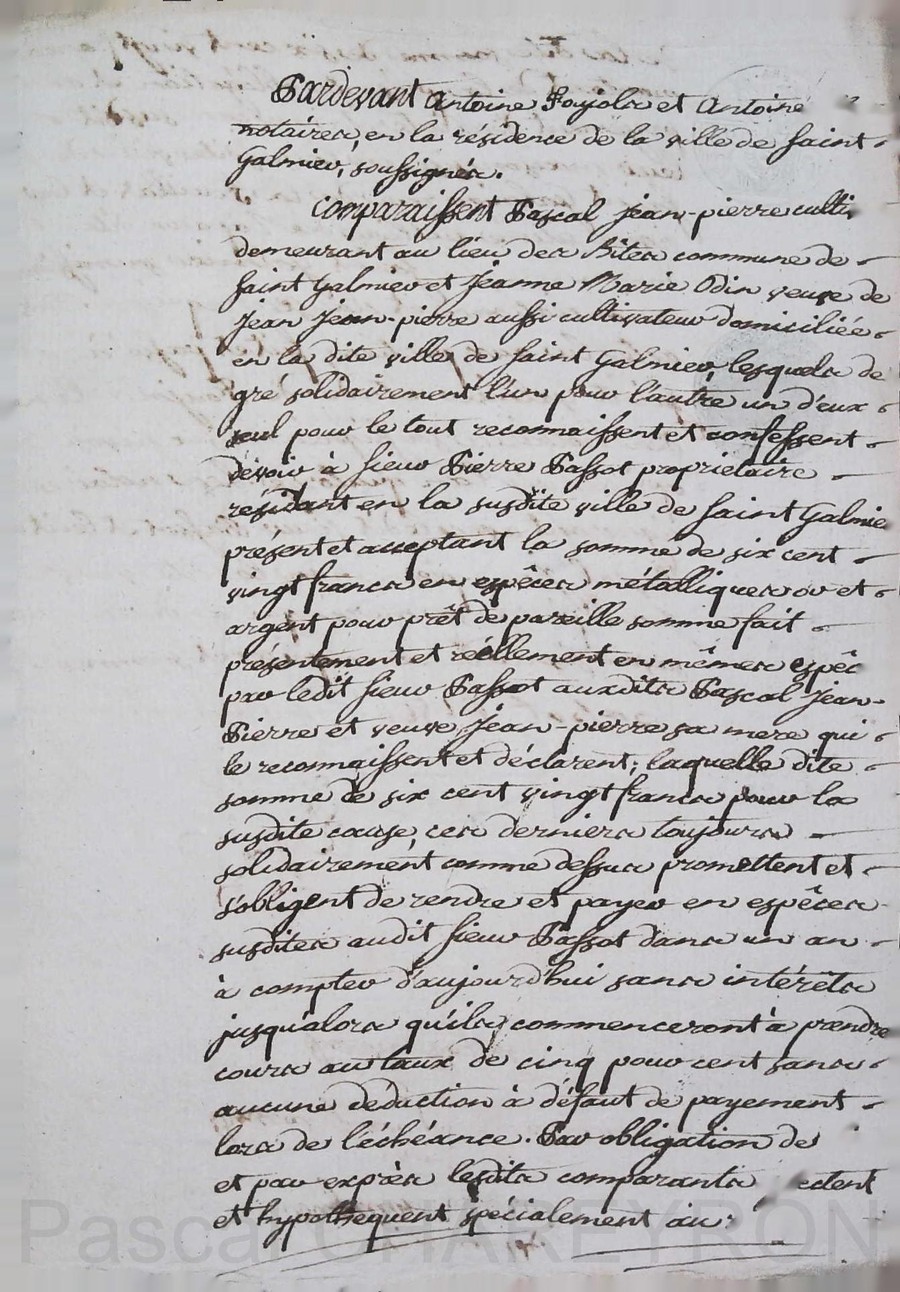 Pardevant Antoine Poujola et Antoine
notaires, en la résidence de la ville de Saint-
Galmier, soussignés.
Comparaissent Pascal Jean-pierre culti
demeurant au lieu des commune de
Saint Galmier et Jeanne Marie Odin veuve de
Jean Jean-pierre aussi cultivateur domiciliée
en la dite ville de Saint Galmier, lesquels de
gré solidairement l'un pour l'autre un d'eux
seul pour le tout reconnaissent et confessent
devoir à Sieur Pierre Passot propriétaire
résidant en la susdite ville de Saint Galmie
présent et acceptant la somme de six cent
vingt francs en espèces métalliques or et
argent pour prêt de pareille somme fait
présentement et réellement en mêmes espèc
par ledit Sieur Passot auxdits Pascal Jean-
Pierre et veuve Jean-pierre sa mere qui
le reconnaissent et déclarent; laquelle dite
somme de six cent vingt francs pour la
susdite cause, ces derniers toujours
solidairement comme dessus promettent et
s'obligent de rendre et payer en espèces
susdites audit Sieur Passot dans un an
à compter d'aujourd'hui sans intérêts
jusqu'alors qu'ils commenceront à prendre
cours au taux de cinq pour cent sans
aucune déduction à défaut de payement
lors de l'échéance. Par obligation de
et par exprès lesdits comparants ectent
et hypothequent spécialement au:
Pascal CHAREYRON